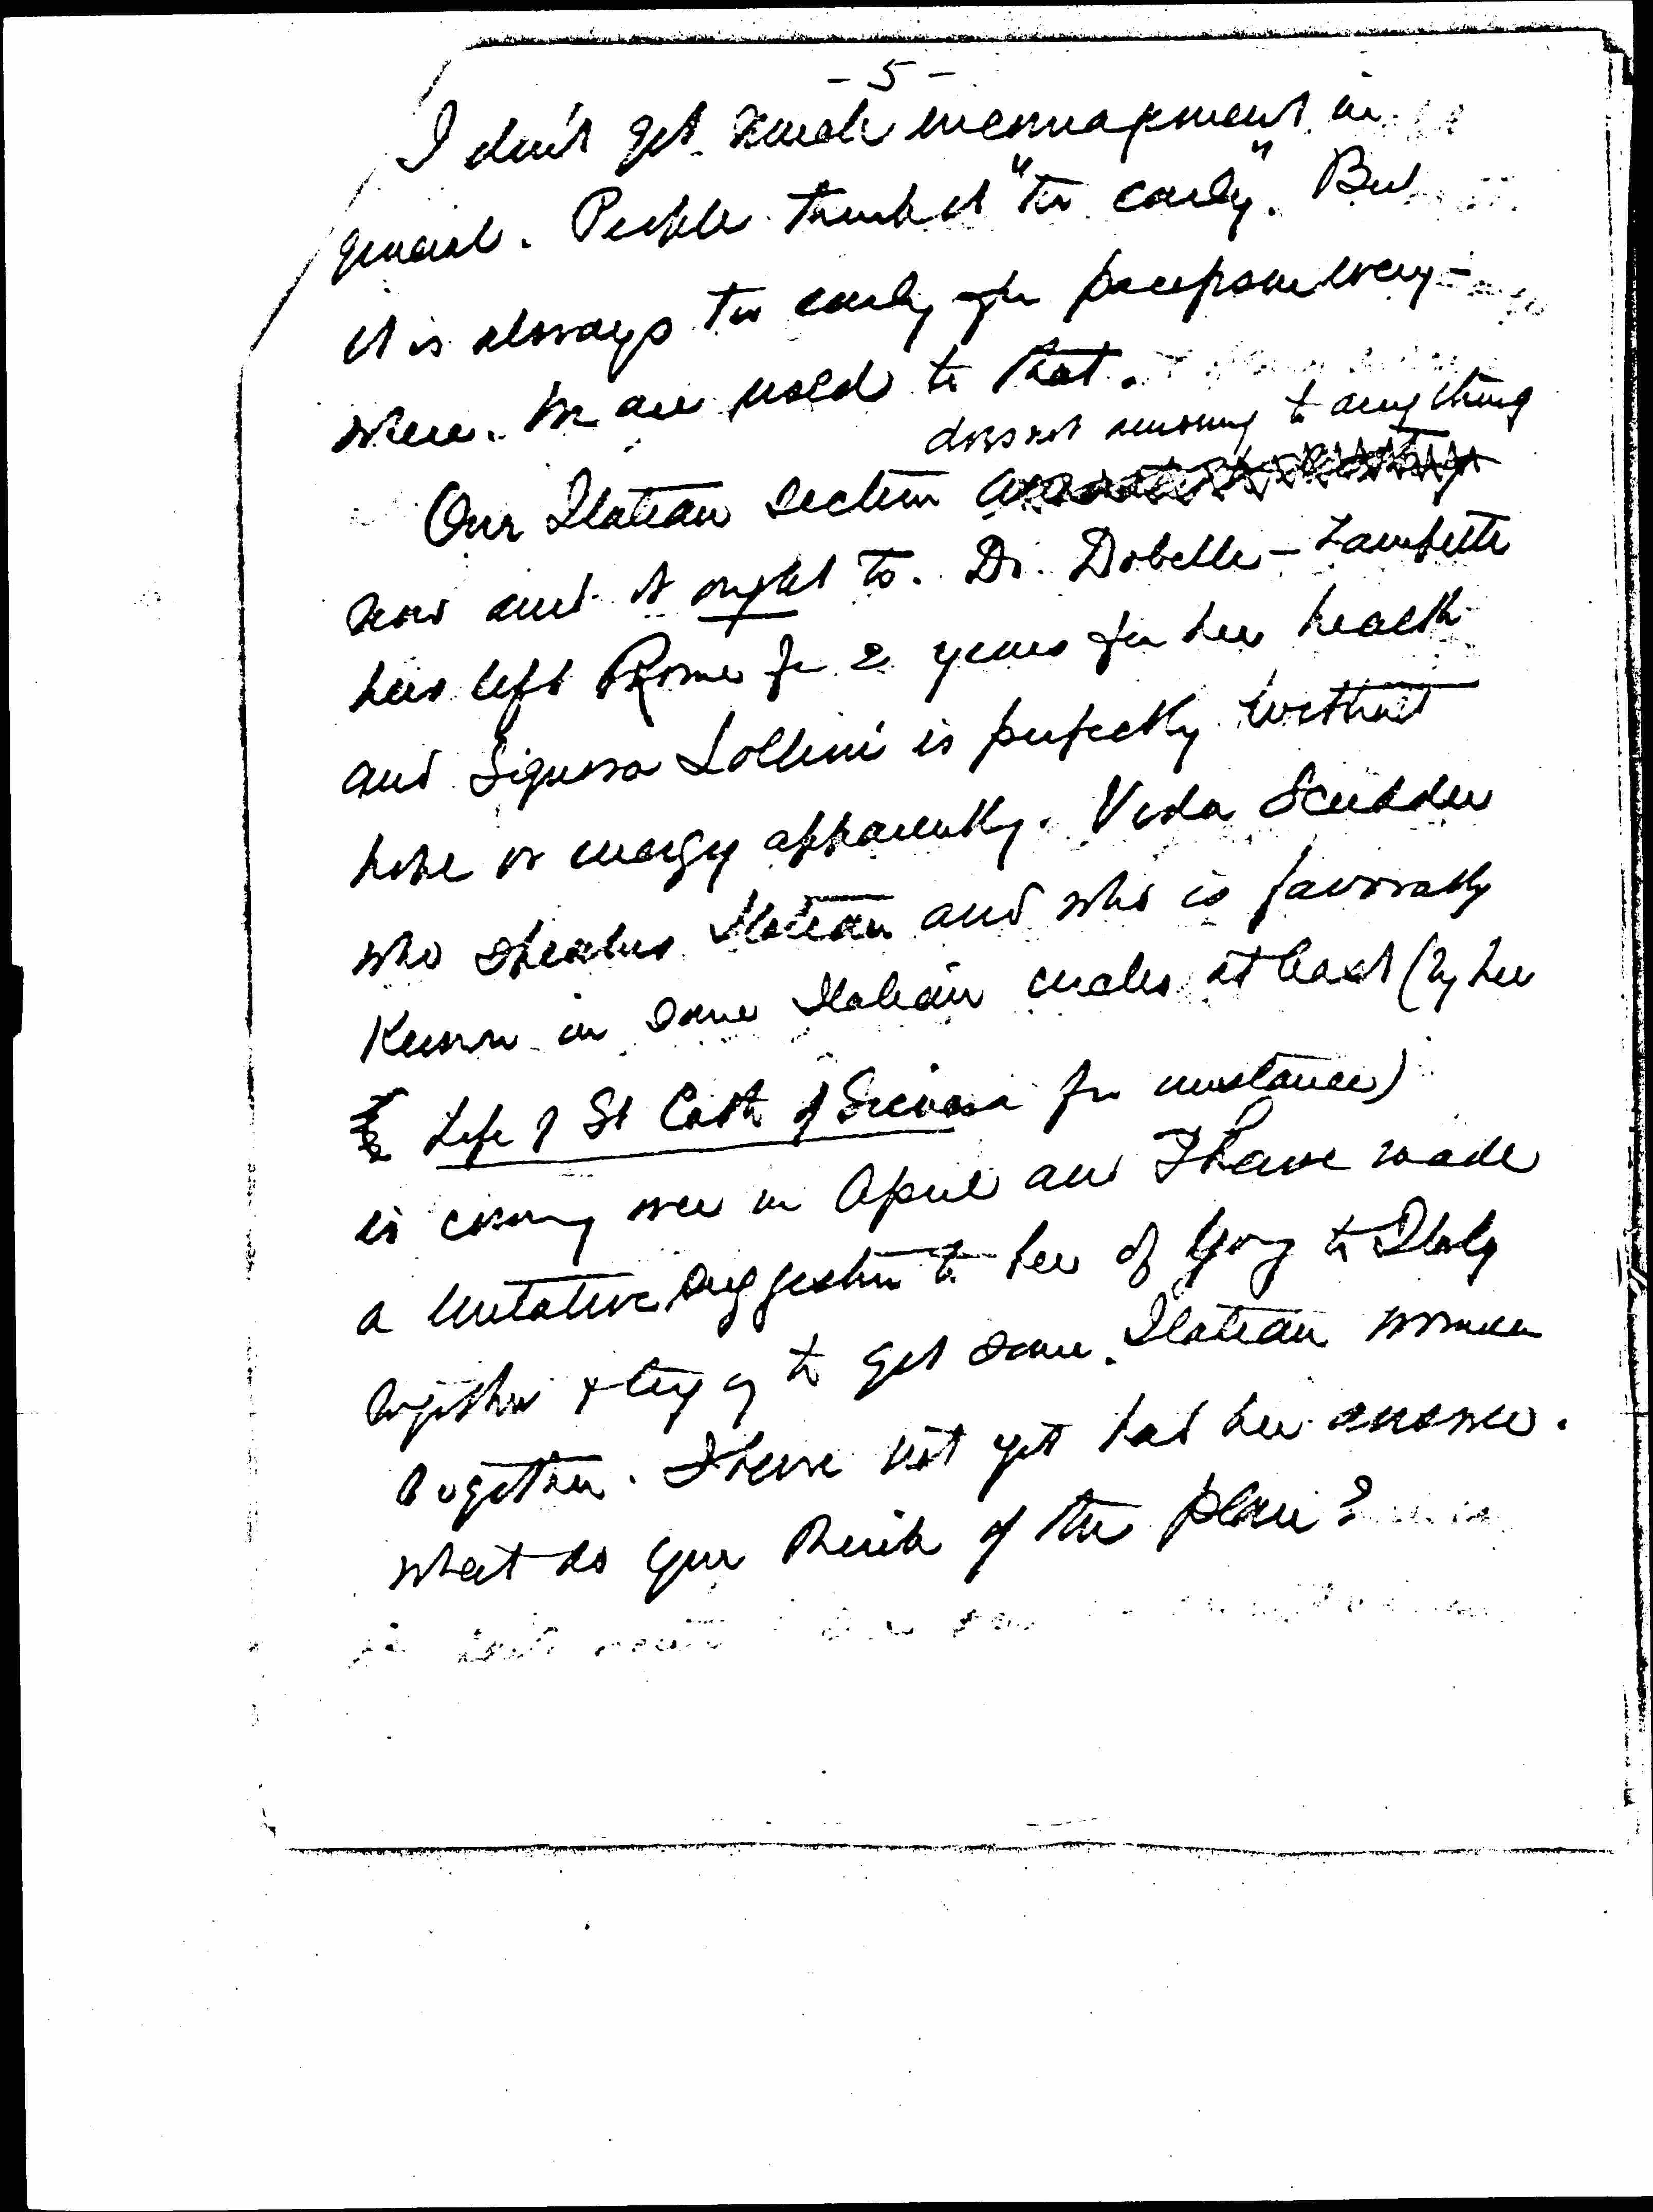 - 5 -
I don't get much encouragement in
general. People think it "too early". But
it is always too early for everyone every-
where. We are used to that.
does not amount to anything
Our Italian section
now and it ought to. Dr. Dobelli-Zampetti
has left Rome for 2 years for her health
and Signora Lollini is perfectly without
hope or energy apparently. Vida Scudder
who speaks Italian and who is favorably
known in some Italian circles at least (by her
Life of St Cath of Sienna for instance)
is coming over in April and I have made
a tentative suggestion to her of going to Italy
together & trying to get some Italian women
together. I have not yet had her answer.
What do you think of the plan?